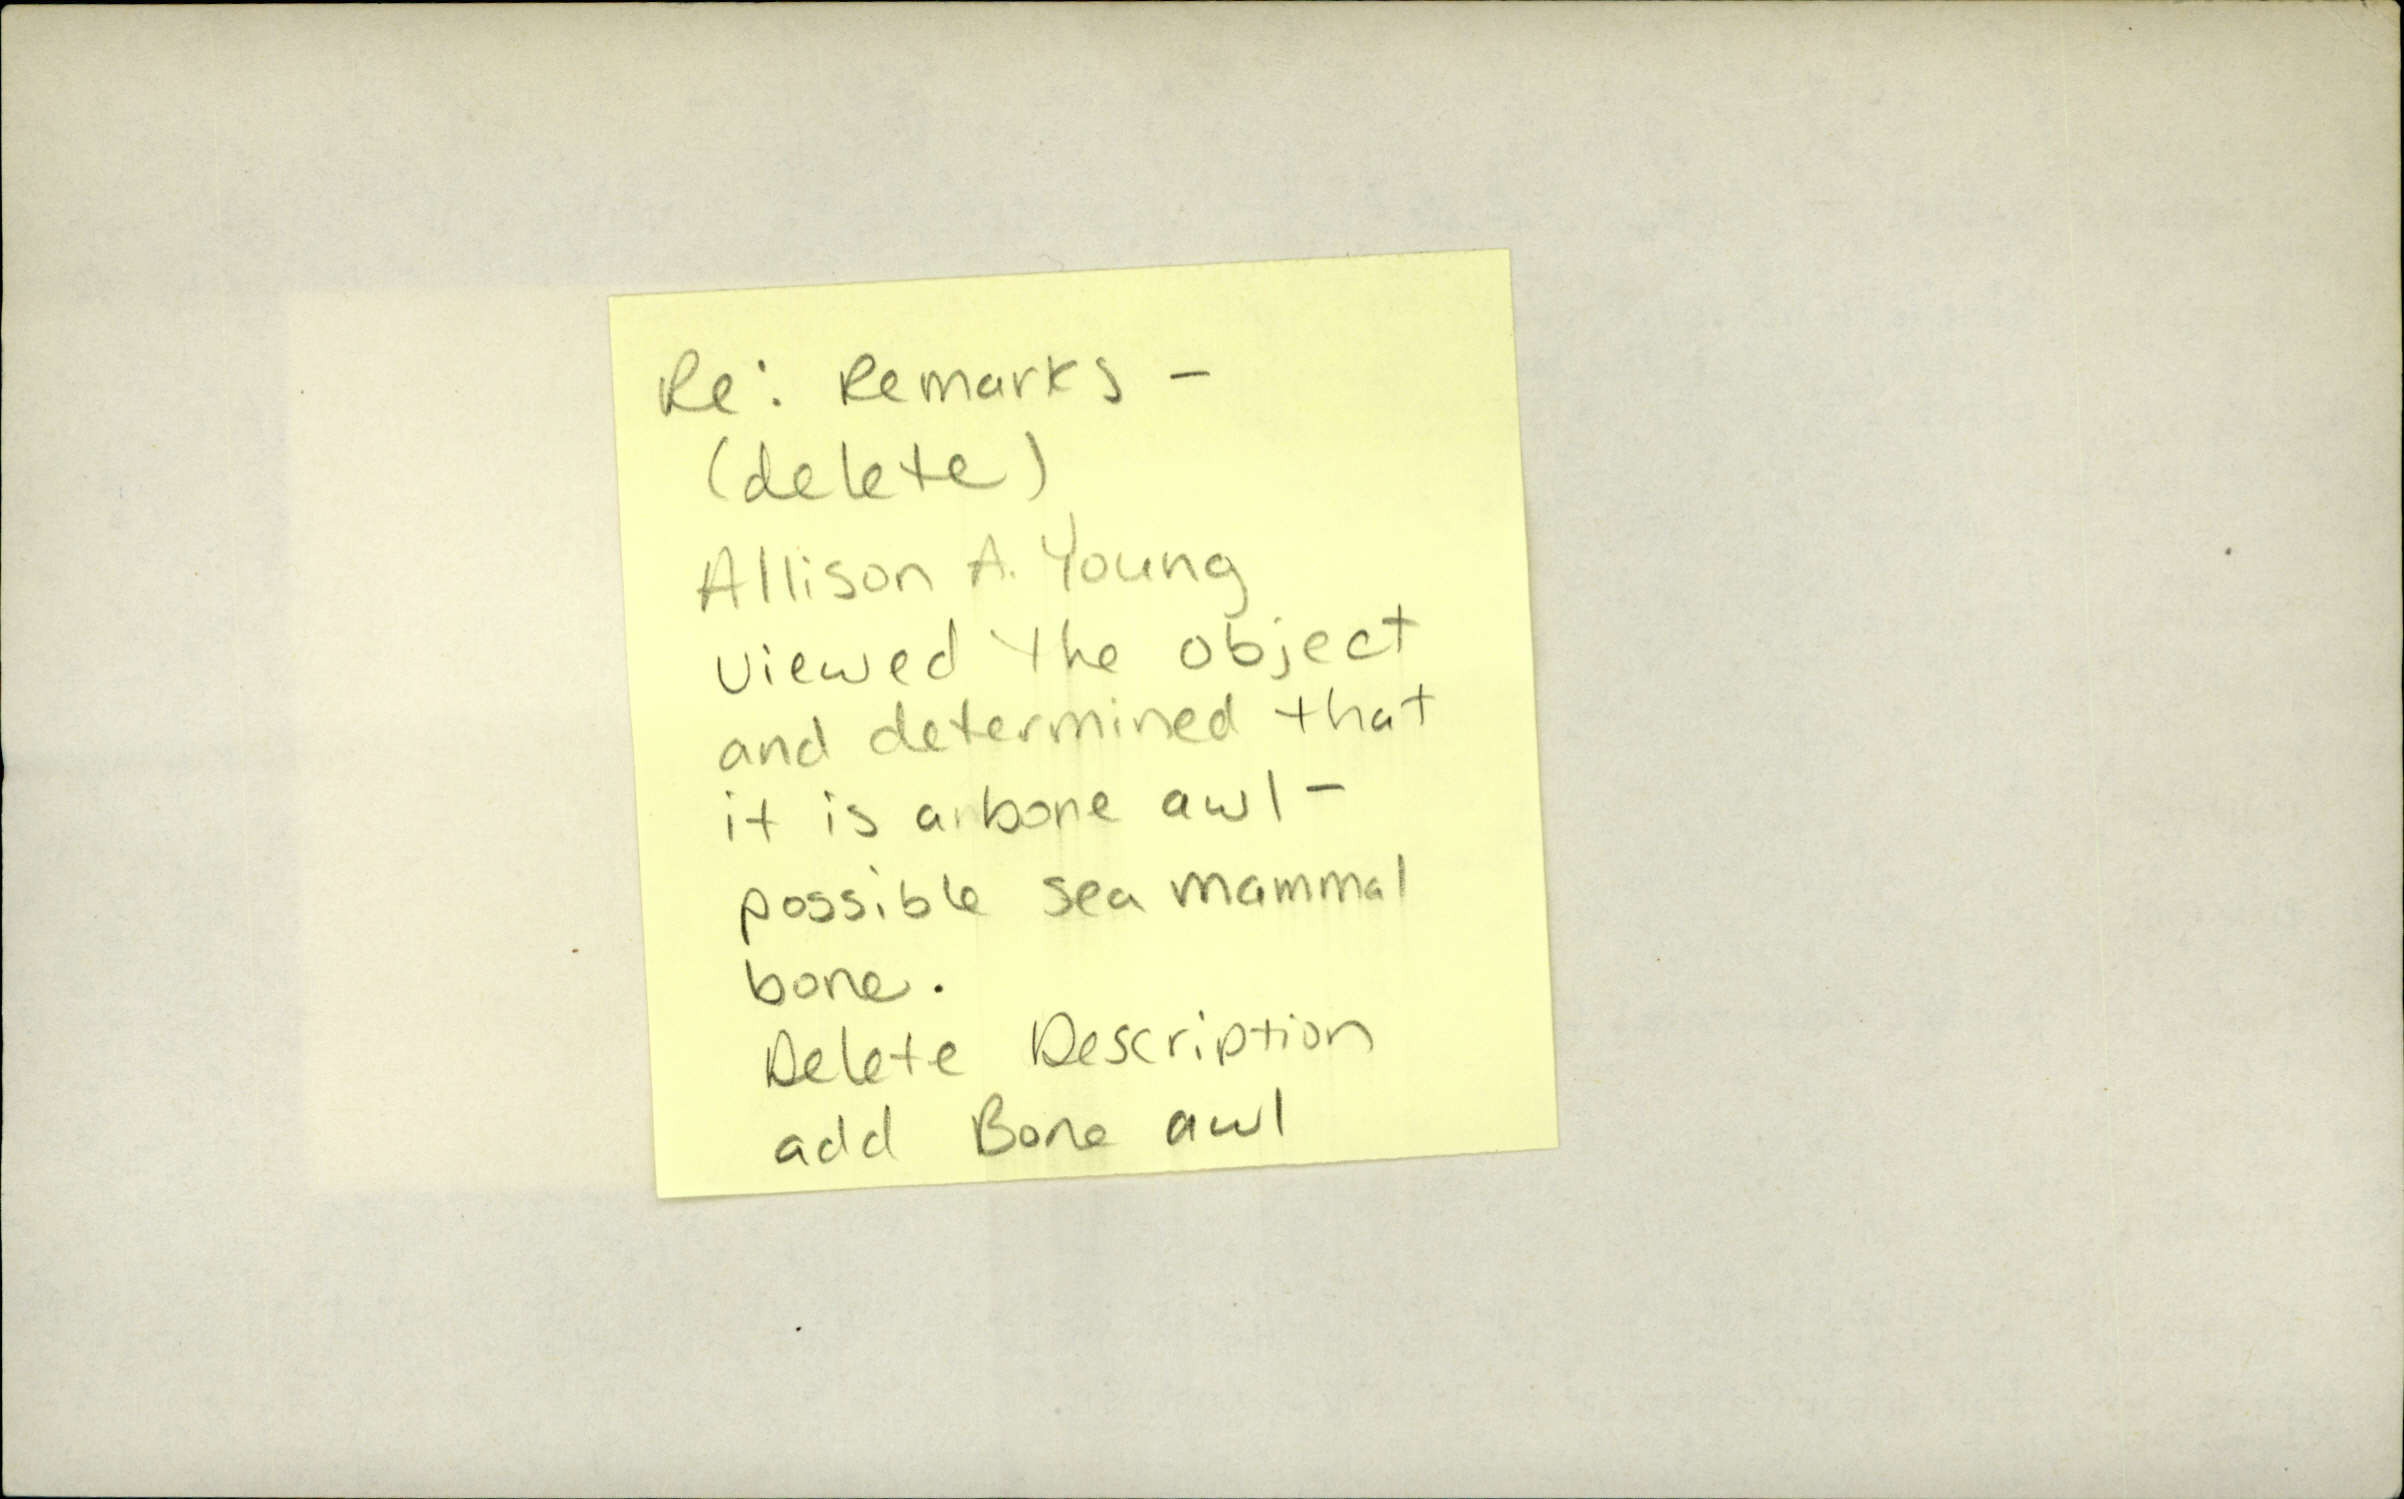 Re: Remarks -
(delete)
Allison A. Young
viewed the object
and determined that
it is a bone awl -
possible sea mammal
bone.
Delete Description
add Bone awl